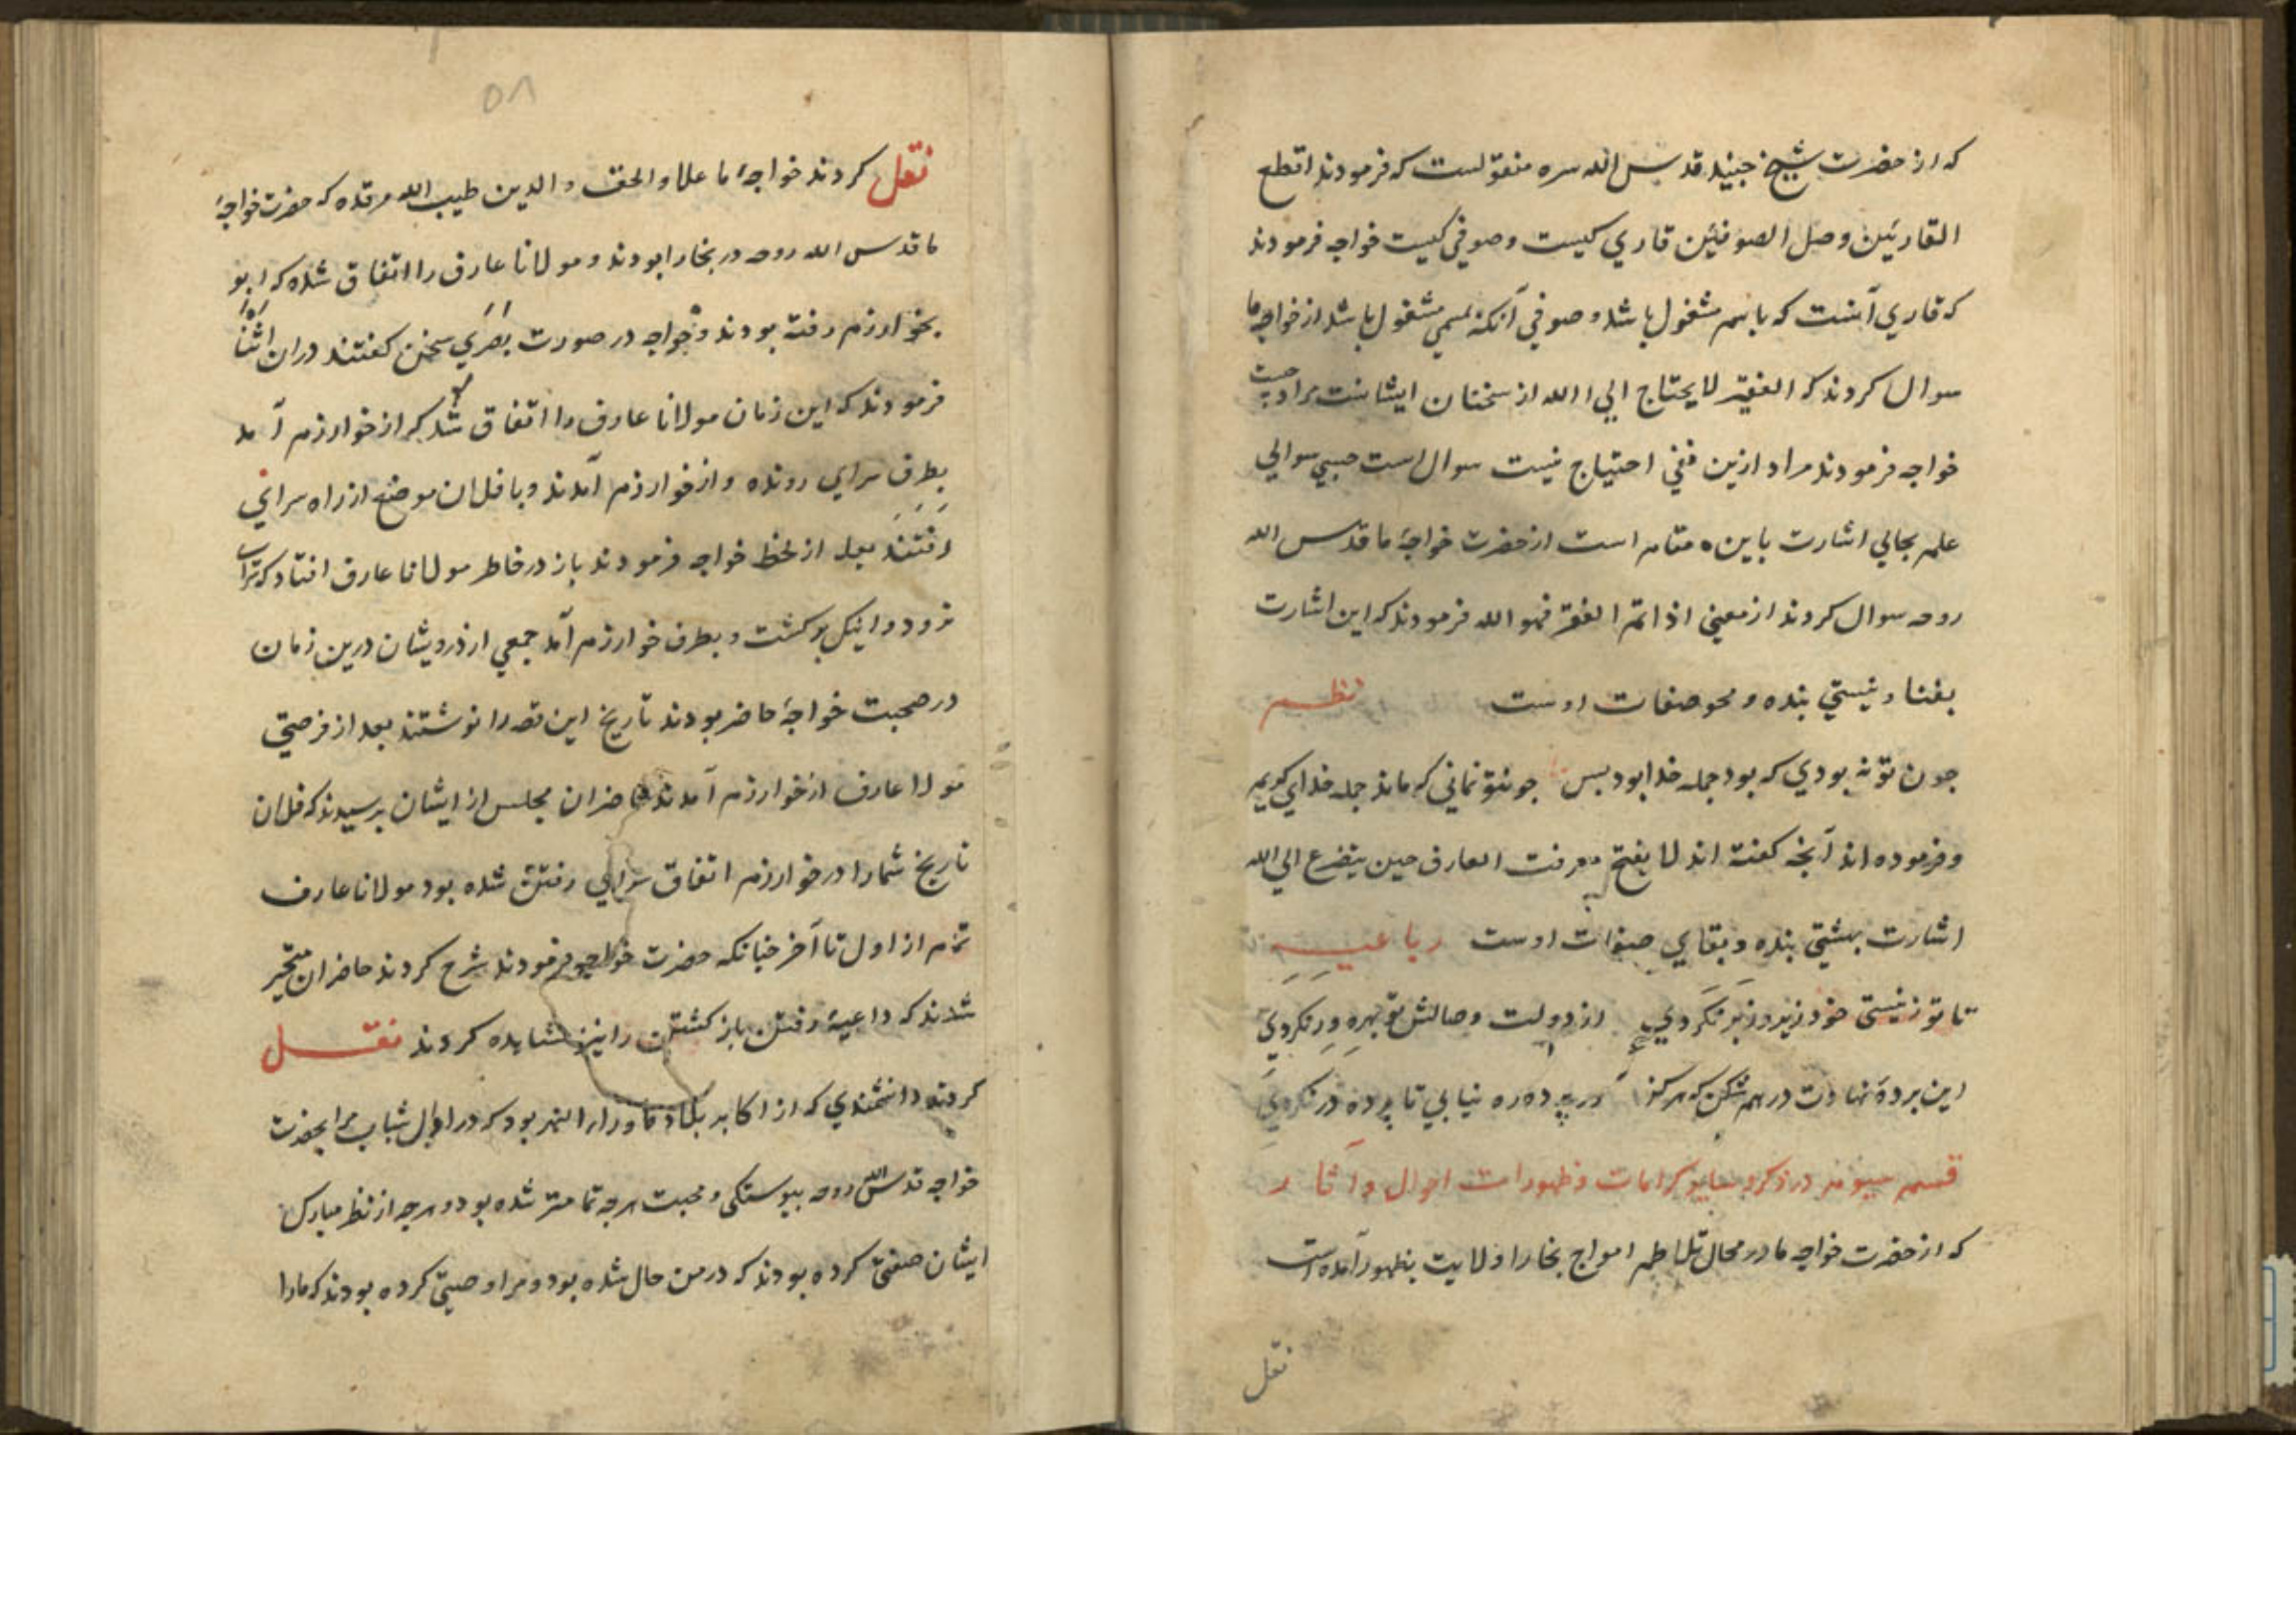 که از حضرت شیخ جنید قدس الله سره منقولست که فرمودند اقطع
القارئین وصل الصوفیین قاري کیست و صوفي کیست خواجه فرمودند
که قاري آنست که باسم مشغول باشد و صوفي آنکه بمسمي مشغول باشد از خواجه ما
سوال کردند که الفقیر لا یحتاج الي الله از سخنان ایشانست مراد چیست
خواجه فرمودند مراد ازین نفي احتیاج نیست سوال است حسبي سوالي
علمه بحالي اشارت باین مقام است از حضرت خواجهٔ ما قدس الله
روحه سوال کردند از معني اذا تم الفقر فهو الله فرمودند که این اشارت
بفنا و نیستي بنده و محو صفات اوست نظم
چون تو نه بودي که بود جمله خدا بود بس چونتو نماني که ماند جمله خداي کریم
و فرموده اند آنچه گفته اند لا یفتح معرفت العارف حین یتضرع الي الله
اشارت بهستي بنده و بقاي صفات اوست رباعیه
تا تو ز نیستي خود زیر و زبر نگردي از دولت وصالش تو بهره ور نگردي
این پردهٔ نهادت درهم شکن که هرگز در پرده ره نیابي تا پرده در نگردي
قسم سیوم در ذکر و بیان کرامات و ظهورات احوال و آثار
که از حضرت خواجه ما در محال تلاطم امواج بخارا و ولایت بظهور آمده است
نقل
۵۸
نقل کردند خواجهٔ ما علاء الحق و الدین طیب الله مرقده که حضرت خواجهٔ
ما قدس الله روحه در بخارا بودند و مولانا عارف را اتفاق شده که ابو
بخوارزم رفته بودند و خواجه در صورت بصري سخن گفتند دران اثنا
فرمودند که این زمان مولانا عارف را اتفاق شد که از خوارزم آمد
بطرف سراي رونده و از خوارزم آمدند و بافلان موضع از راه سراي
رفتند بعد از لحظ خواجه فرمودند باز در خاطر مولانا عارف افتاد که سراي
نرود و اینک برگشت و بطرف خوارزم آمد جمعي از درویشان درین زمان
در صحبت خواجهٔ حاضر بودند تاریخ این قصه را نوشتند بعد از فرصتي
مولا عارف از خوارزم آمدند حاضران مجلس از ایشان پرسیدند که فلان
تاریخ شما را در خوارزم اتفاق سراي رفتن شده بود مولانا عارف
تمام از اول تا آخر چنانکه حضرت خواجه فرمودند شرح کردند حاضران متحیر
شدند که داعیهٔ رفتن باز گشتن را نیز مشاهده کردند نقل
کردند دانشمندي که از اکابر بلاد ماوراء النهر بود که در اوایل شباب مرا بحضرت
خواجه قدس الله روحه پیوستگي و محبت هرچه تمامتر شده بود و هرچه از نظر مبارک
ایشان صفتي کرده بودند که در من حال شده بود و مرا وصیتي کرده بودند که مارا